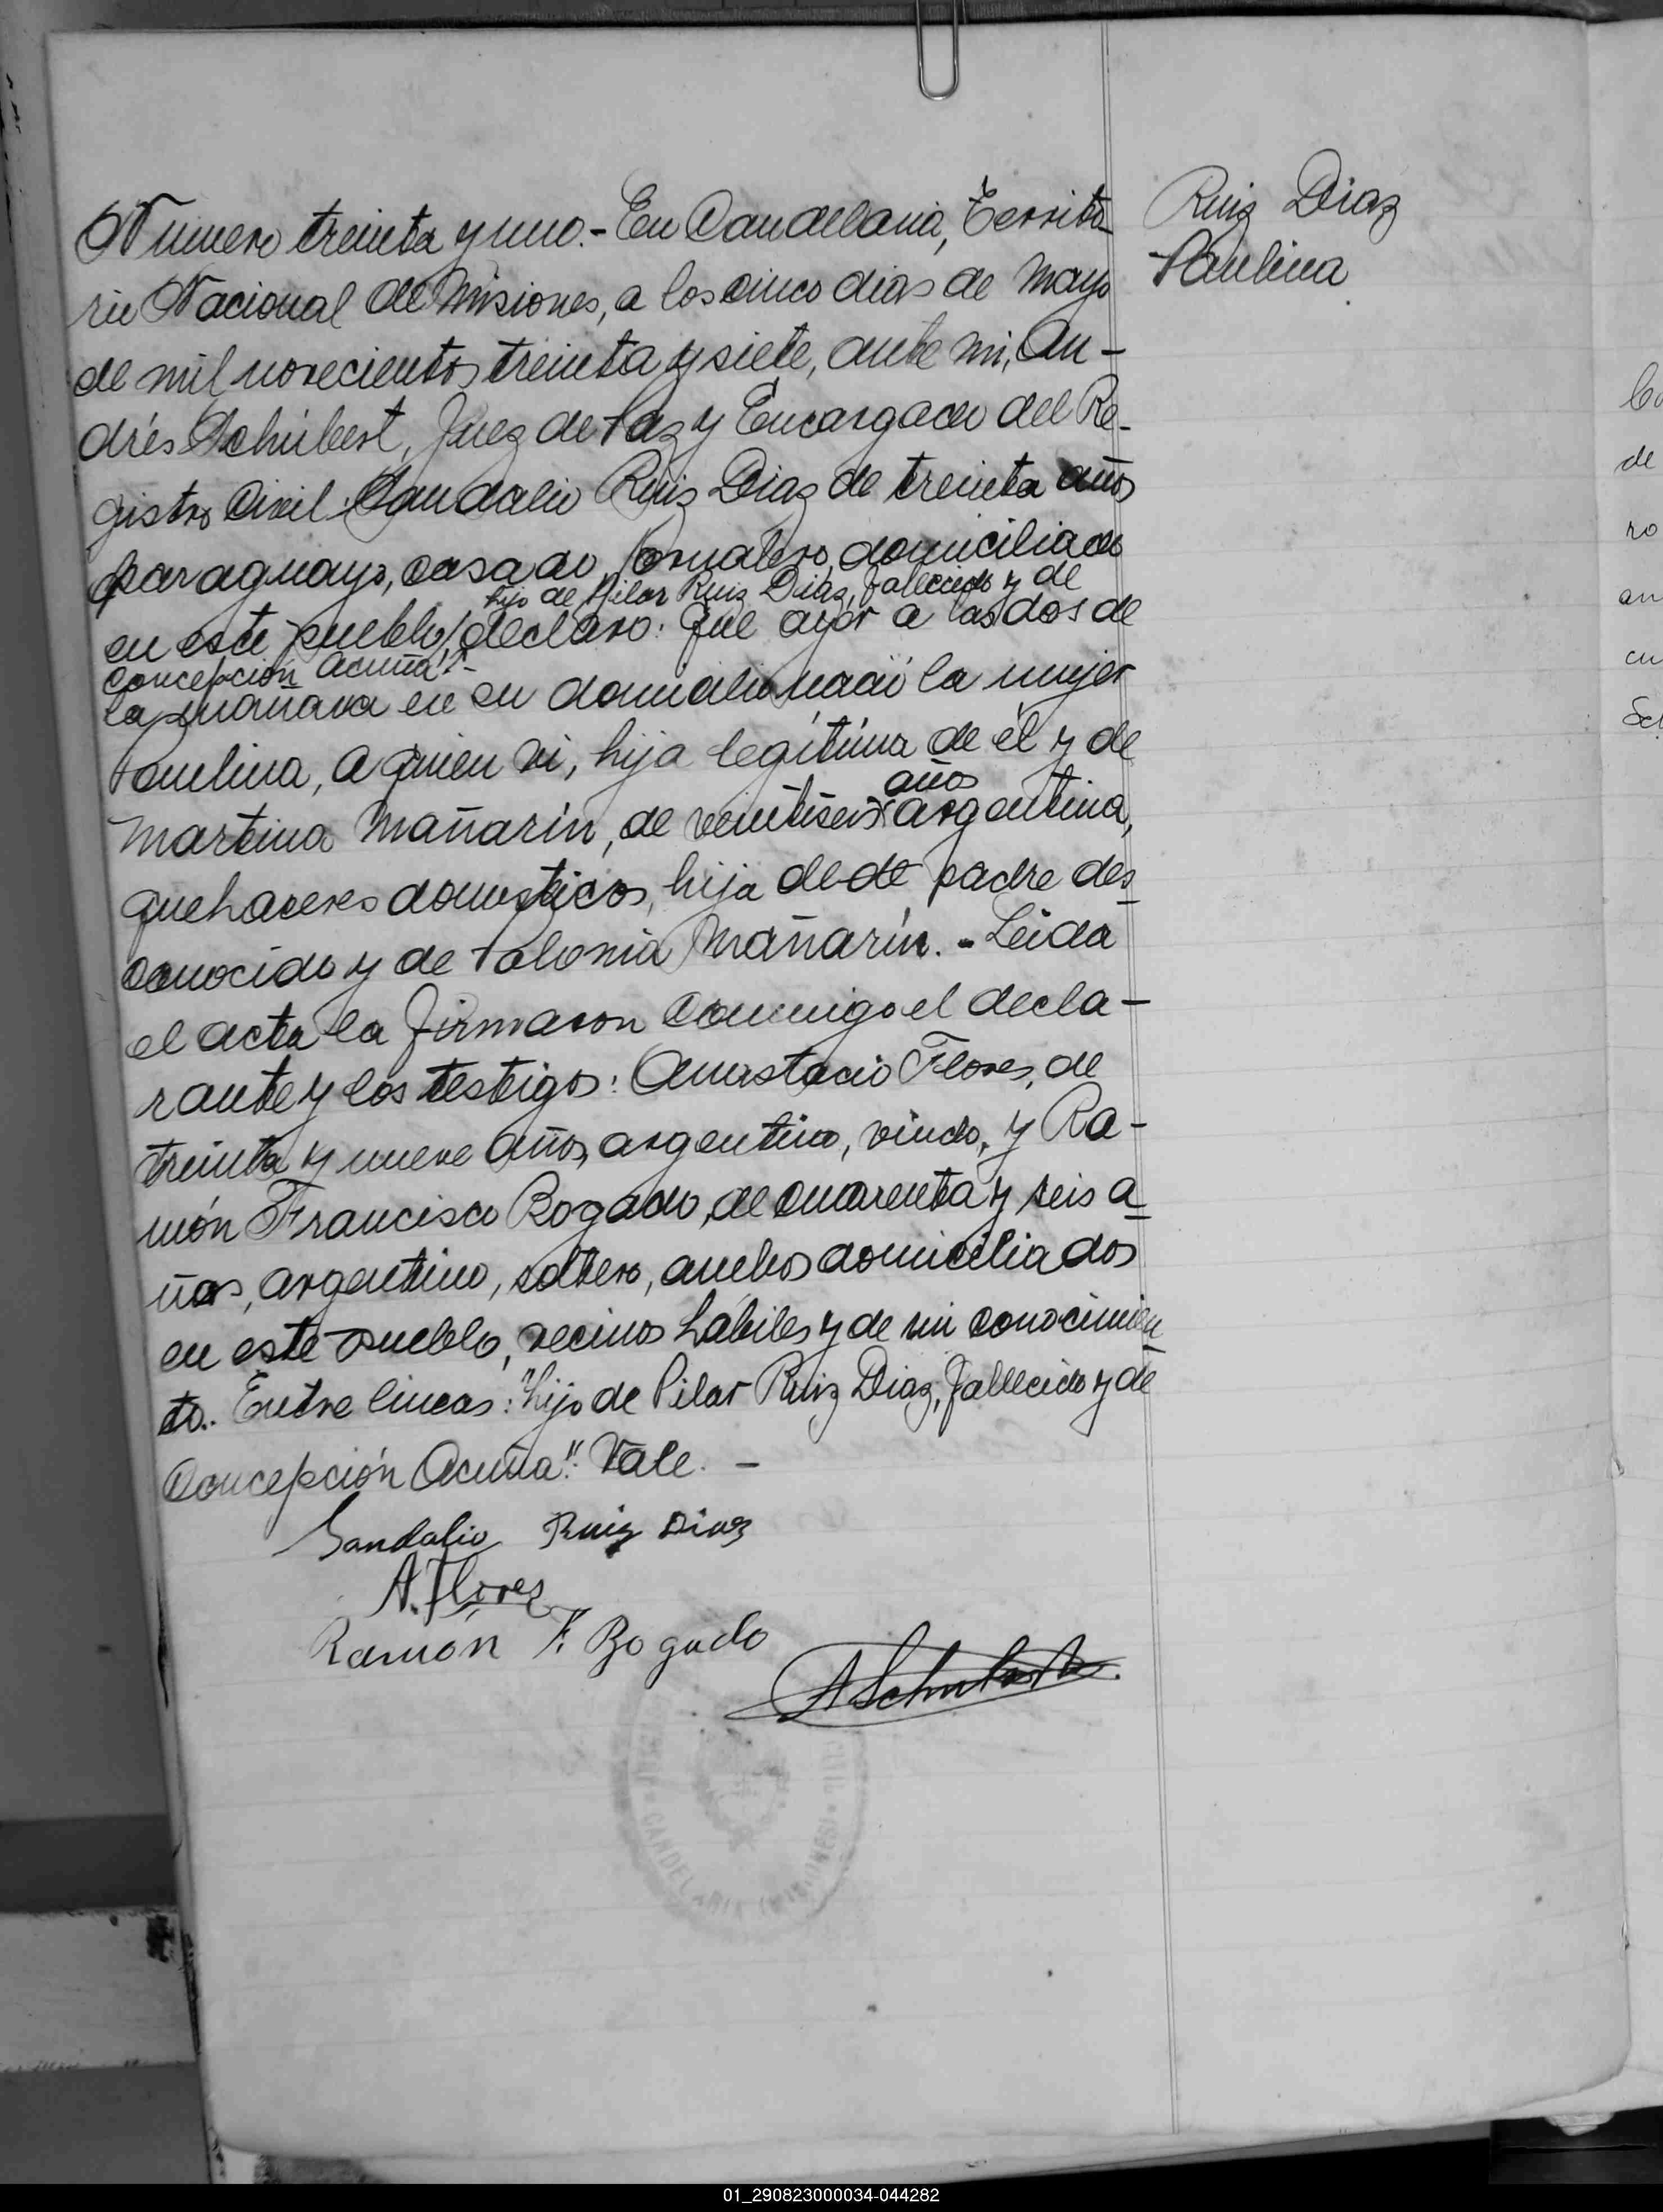 Ruiz Diaz
Paulina
Número treinta y uno.- En Candelaria, Territo-
rio Nacional de Misiones, a los cinco dias de Mayo
de mil novecientos treinta y siete, ante mi, An-
drés Schúbert, Juez de Paz y Encargado del Re-
gistro Civil: Sandalio Ruiz Diaz de treinta años
paraguayo, casado, jornalero, domiciliado
hijo de Pilar Ruiz Diaz, fallecido y de
en este pueblo, declaro: Que ayer a las dos de
Concepción Acuña".-
la mañana en su domicilio nació la mujer
Paulina, a quien vi, hija legítima de él y de
años
Martina Mañarín, de veintiseis argentina,
quehaceres domesticos, hija de de padre des-
conocido y de Polonia Mañarín.- Leida
el acta la firmaron conmigo el decla-
rante y los testigos: Anastacio Flores, de
treinta y nueve años, argentino, viudo, y Ra-
món Francisco Bogado, de cuarenta y seis a-
ños, argentino, soltero, ambos domiciliados
en este pueblo, vecinos habiles y de mi conocimien-
to.- Entre lineas: "hijo de Pilar Ruiz Diaz, fallecido y de
Concepción Acuña". Vale. -
Sandalio Ruiz Diaz
A. Flores
Ramón F. Bogado
ASchubert
CANDELARIA (MISIONES)
01_290823000034-044282